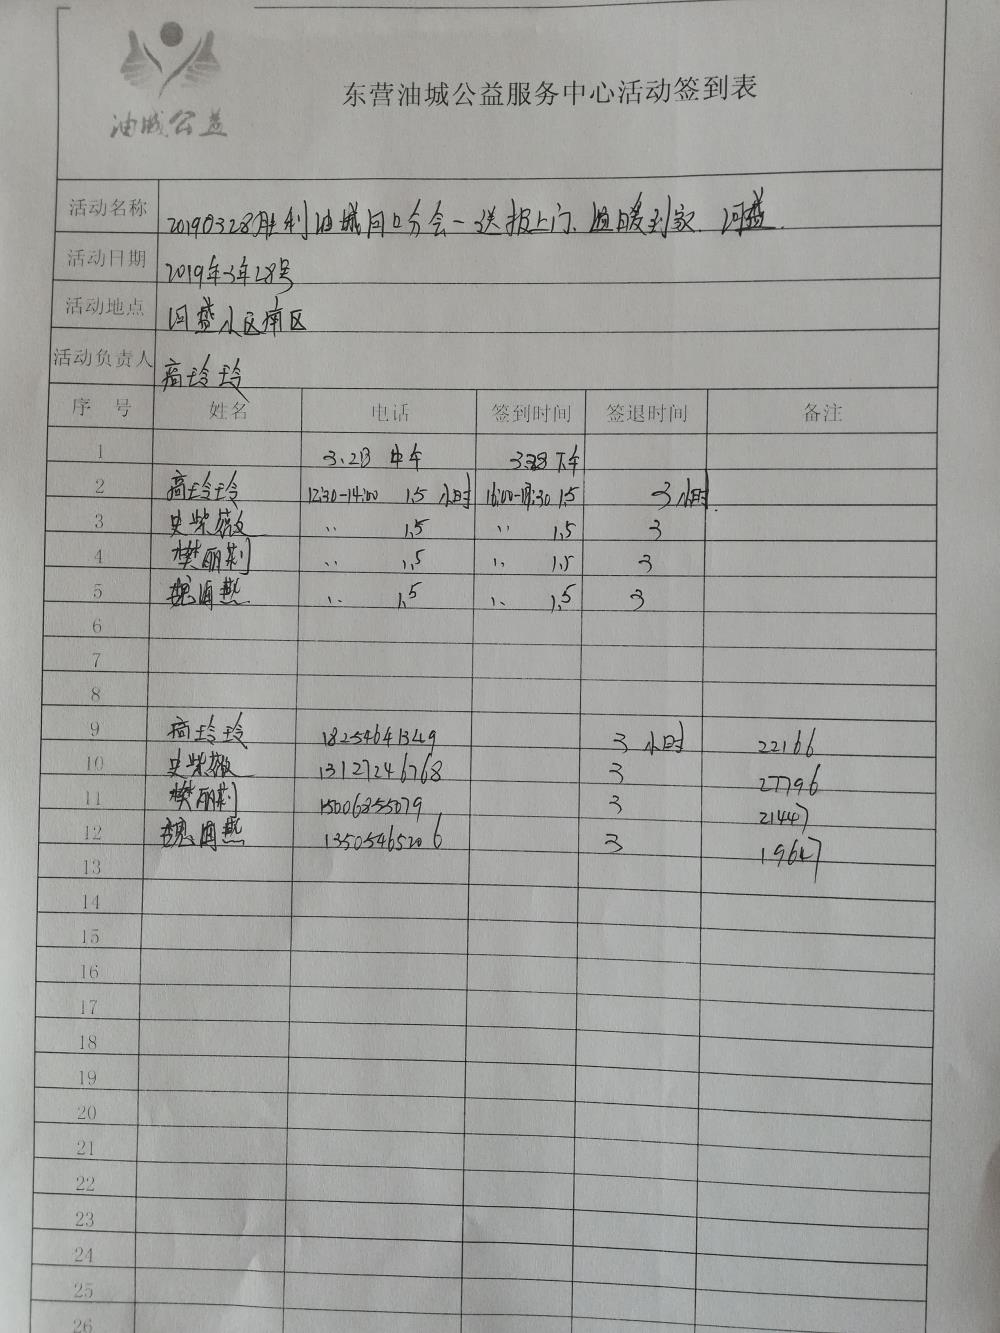 油城公益
东营油城公益服务中心活动签到表
活动名称 20190328胜利油城河口分会-送报上门、温暖到家、河盛.
活动日期 2019年3年28号
活动地点 河盛小区南区
活动负责人 高玲玲
序 号 姓名 电话 签到时间 签退时间 备注
1 3.28 中午 3.28 下午
2 高玲玲 12:30-14:00 1.5 小时 1.5 3小时.
3 史柴薇 〃 1.5 〃 1.5 3
4 樊丽荆 〃 1.5 〃 1.5 3
5 魏海燕 〃 1.5 〃 1.5 3
6
7
8
9 高玲玲 18254641349 3 小时 22166
10 史柴薇 13127246768 3 27796
11 樊丽荆 3 21447
12 魏海燕 13505465206 3 19647
13
14
15
16
17
18
19
20
21
22
23
24
25
26